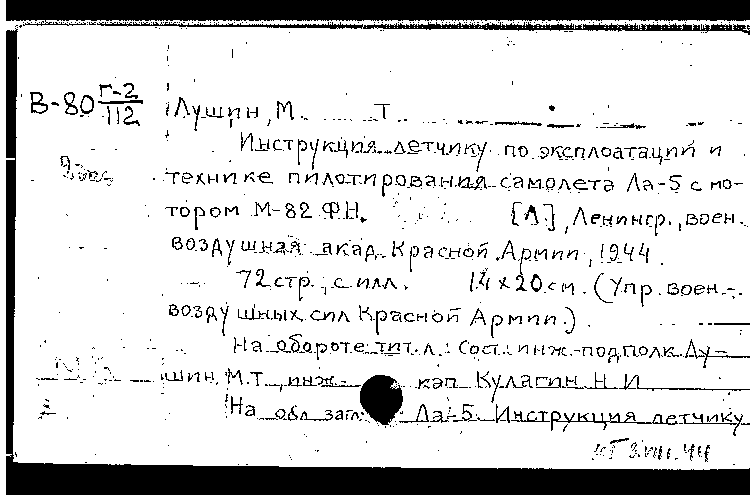 В-80 Г-2/112 Лушин, М. Т.
Инструкция летчику по эксплоатации и
технике пилотирования самолета Ла-5 с мо-
тором М-82 ФН. [Л.], Ленингр. воен.
воздушная акад. Красной Армии, 1944.
72 стр., с илл. 14 x 20 см. (Упр. воен.-
воздушных сил Красной Армии.)
На обороте тит. л.: Сост. инж.-подполк. Лу-
шин М.Т., инж.- кап Кулагин Н. И
На обл. загл. Ла-5. Инструкция летчику
КГ 3.VIII.44